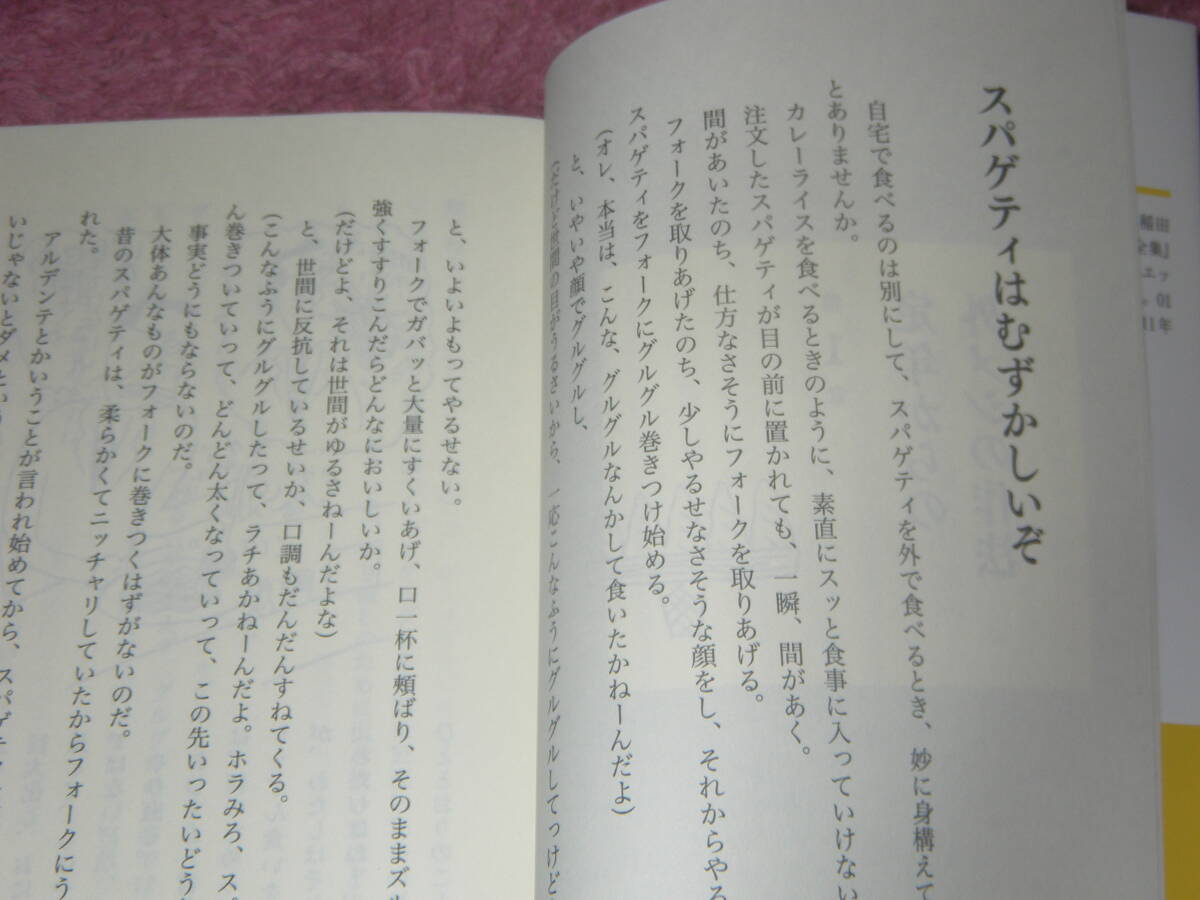 スパゲティはむずかしいぞ
自宅で食べるのは別にして、スパゲティを外で食べるとき、妙に身構えて
とありませんか。
カレーライスを食べるときのように、素直にスッと食事に入っていけない
注文したスパゲティが目の前に置かれても、一瞬、間があく。
間があいたのち、仕方なさそうにフォークを取りあげる。
フォークを取りあげたのち、少しやるせなさそうな顔をし、それからやる
スパゲティをフォークにグルグル巻きつけ始める。
(オレ、本当は、こんな、グルグルなんかして食いたかねーんだよ)
と、いやいや顔でグルグルし、
(だけど世間の目がうるさいから、一応こんなふうにグルグルしてっけど
と、いよいよもってやるせない。
フォークでガバッと大量にすくいあげ、口一杯に頰ばり、そのままズル
強くすすりこんだらどんなにおいしいか。
(だけどよ、それは世間がゆるさねーんだよな)
と、世間に反抗しているせいか、口調もだんだんすねてくる。
(こんなふうにグルグルしたって、ラチあかねーんだよ。ホラみろ、ス
ん巻きついていって、どんどん太くなっていって、この先いったいどう
事実どうにもならないのだ。
大体あんなものがフォークに巻きつくはずがないのだ。
昔のスパゲティは、柔らかくてニッチャリしていたからフォークにう
れた。
アルデンテとかいうことが言われ始めてから、スパゲ
いじゃないとダメという
稲田
全集』
エッ
01
11年